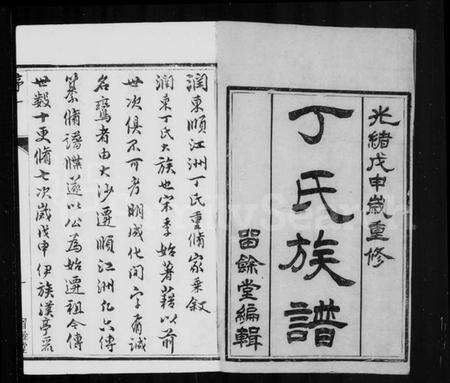 光緒戊申歲重修
丁氏族譜
留餘堂編輯
潤東順江洲丁氏重脩家乘敘
潤東丁氏大族也宋季始著籍以前
世次俱不可考明成化間字省誠
名鸞者由大沙遷順江洲凡六傳
纂脩譜牒遂以公為始遷祖今傳
世數十更脩七次歲戊申伊族漢亭
序